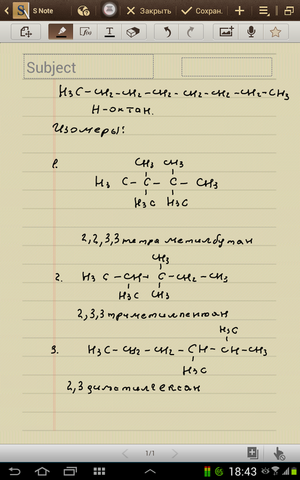 S Note
Закрыть
Сохран.
Subject
H₃C-CH₂-CH₂-CH₂-CH₂-CH₂-CH₂-CH₃
Н-октан.
Изомеры:
1.
CH₃ CH₃
H₃C-C-C-CH₃
H₃C H₃C
2,2,3,3тетраметилбутан
CH₃
2. H₃C-CH-C-CH₂-CH₃
H₃C CH₃
2,3,3триметилпентан
H₃C
3. H₃C-CH₂-CH₂-CH-CH-CH₃
H₃C
2,3диметилгексан
1/1
18:43